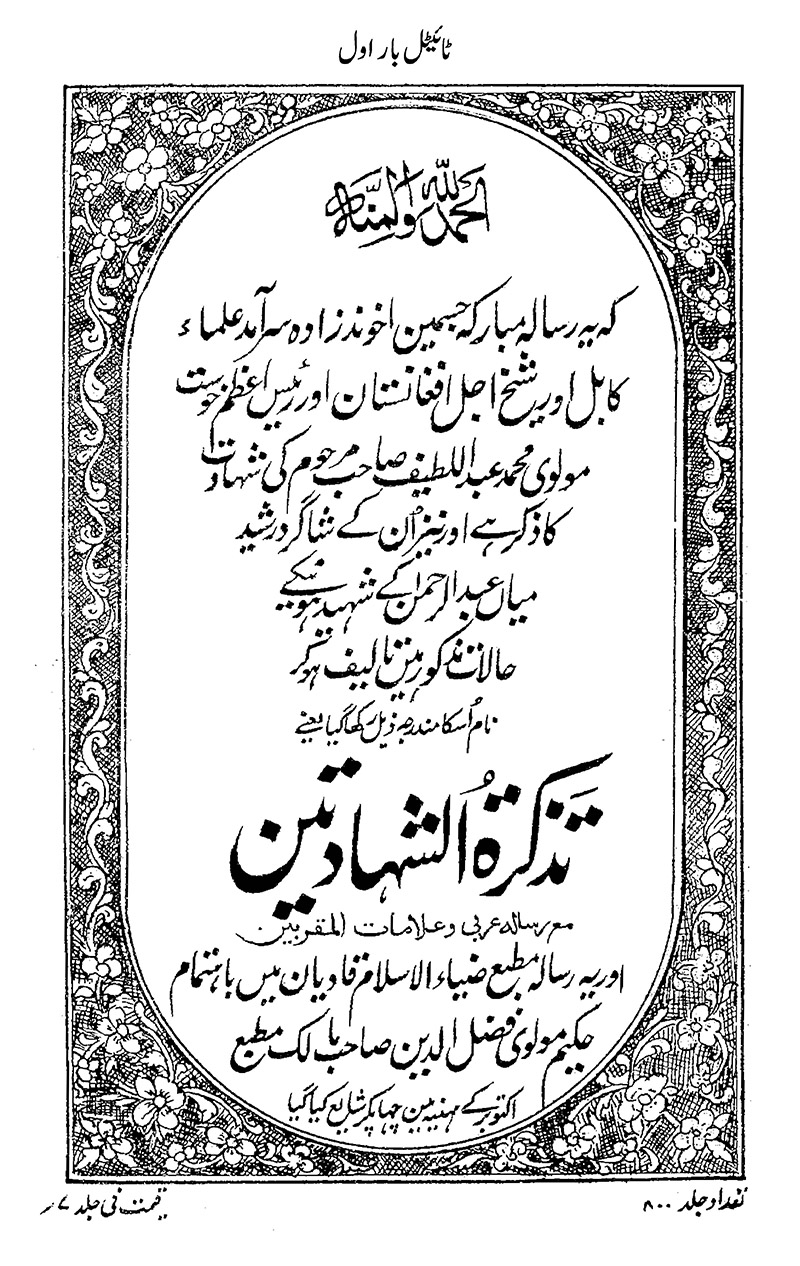 ٹائیٹل بار اول
الحمد للہ والمنۃ
کہ یہ رسالہ مبارکہ جسمیں اخوندزادہ سرآمد علماء
کابل اور شیخ اجل افغانستان اور رئیس اعظم خوست
مولوی محمد عبد اللطیف صاحب مرحوم کی شہادت
کا ذکر ہے اور نیز اُن کے شاگرد رشید
میاں عبدالرحمٰن کے شہید ہونیکے
حالات مذکور ہیں تالیف ہو کر
نام اُسکا مندرجہ ذیل رکھا گیا یعنے
تَذکرۃُ الشہادتین
مع رسالہ عربی و علامات المقربین
اور یہ رسالہ مطبع ضیاء الاسلام قادیان میں باہتمام
حکیم مولوی فضل الدین صاحب مالک مطبع
اکتوبر کے مہنیہ میں چھاپکر شایع کیا گیا
تعداد جلد ۸۰۰
قیمت فی جلد ۷